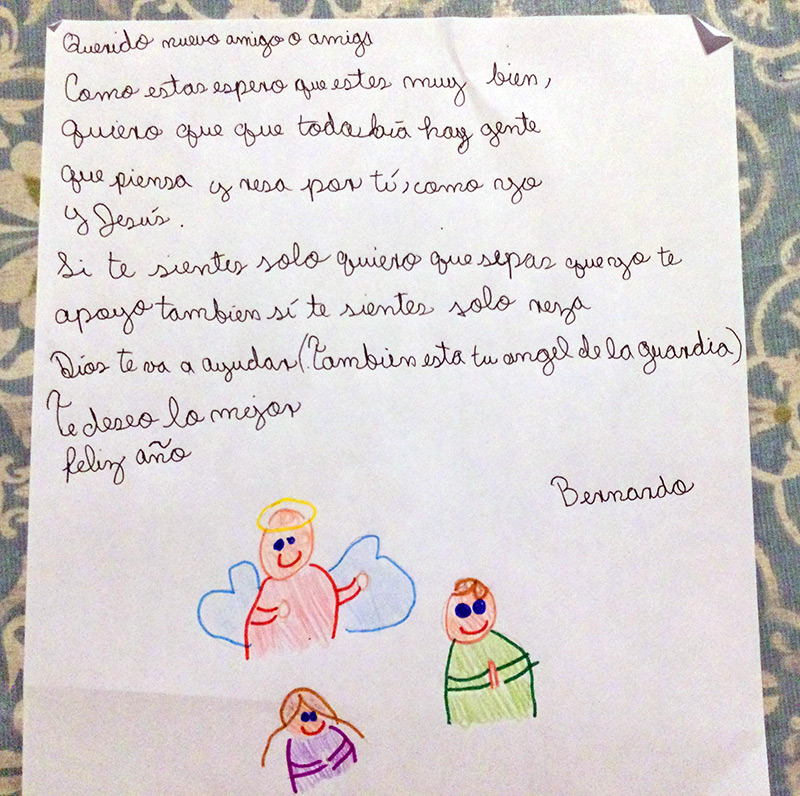 Querido nuevo amigo o amiga
Como estas espero que estes muy bien,
quiero que que todabiá hay gente
que piensa y resa por tí, como yo
y Jesús.
Si te sientes solo quiero que sepas que yo te
apoyo tambien sí te sientes solo reza
Dios te va a ayudar (Tambien esta tu angel de la guardia)
Te deseo lo mejor
feliz año
Bernardo